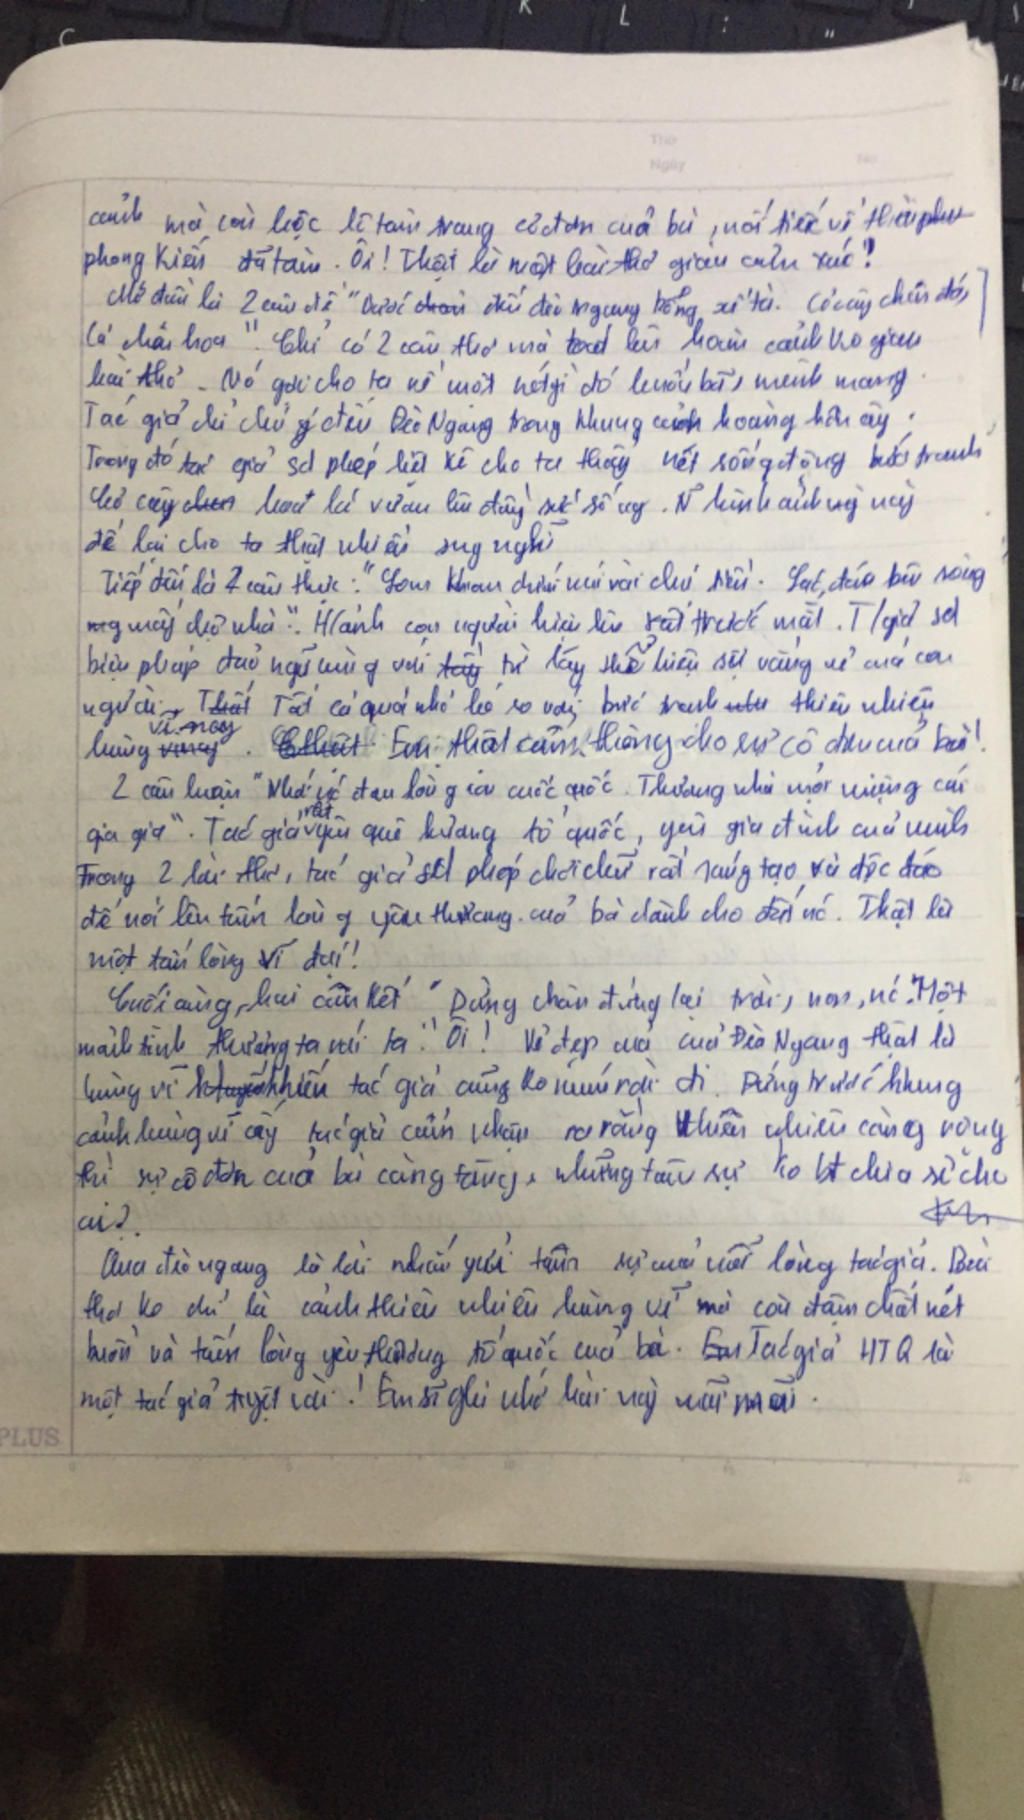 K L : "
C
Thứ
Ngày No
cảnh mà còn bộc lộ tâm trạng cô đơn của bà, nối tiếc về thời
phong kiến đã tàn. Ôi! Thật là một bài thơ giàu cảm xúc!
Mở đầu là 2 câu đề "Bước đến đèo ngang bóng xế tà. Cỏ cây chen đá,
lá chen hoa". Chỉ có 2 câu thơ mà lên hoàn cảnh ko gian
bài thơ. Nó gợi cho ta về một nét gì đó buồn bã, mênh mang.
Tác giả chỉ chú ý đến Đèo Ngang trong khung cảnh hoàng hôn ấy.
Trong đó tác giả sd phép liệt kê cho ta thấy nét sống động bức tranh
cỏ cây hoa lá vươn lên đầy sức sống. N hình ảnh này
để lại cho ta thật nhiều suy nghĩ
Tiếp đến là 2 câu thực: "Lom khom dưới núi vài chú tiều. Lác đác bên sông
mấy chợ nhà". H/ảnh con người hiện lên rất trước mắt. T/giả sd
biện pháp đảo ngữ cùng với từ láy thể hiện sự vắng vẻ của con
người. Tất cả quá nhỏ bé so với bức tranh thiên nhiên
hùng vĩ này. Em thật cảm thông cho sự cô đơn của bà!
2 câu luận "Nhớ nước đau lòng con cuốc quốc. Thương nhà mỏi miệng cái
gia gia". Tác giả rất yêu quê hương tổ quốc, yêu gia đình của mình
Trong 2 lời thơ, tác giả sd phép chơi chữ rất sáng tạo và độc đáo
để nói lên tấm lòng yêu thương của bà dành cho đất nc. Thật là
một tấm lòng vĩ đại!
Cuối cùng, hai câu kết "Dừng chân đứng lại trời, non, nc. Một
mảnh tình thương ta với ta". Ôi! Vẻ đẹp của của Đèo Ngang thật là
hùng vĩ khiến tác giả cũng ko muốn rời đi. Đứng trước khung
cảnh hùng vĩ ấy tác giả cảm nhận ra rằng thiên nhiên càng rộng
thì sự cô đơn của bà càng tăng, những tâm sự ko bt chia sẻ cho
ai?.
Qua đèo ngang là lời nhắn gửi tâm sự của nỗi lòng tác giả. Bài
thơ ko chỉ là cảnh thiên nhiên hùng vĩ mà còn đậm chất nét
buồn và tấm lòng yêu thương tổ quốc của bà. Tác giả HTQ là
một tác giả tuyệt vời! Em sẽ ghi nhớ bài này mãi mãi.
PLUS